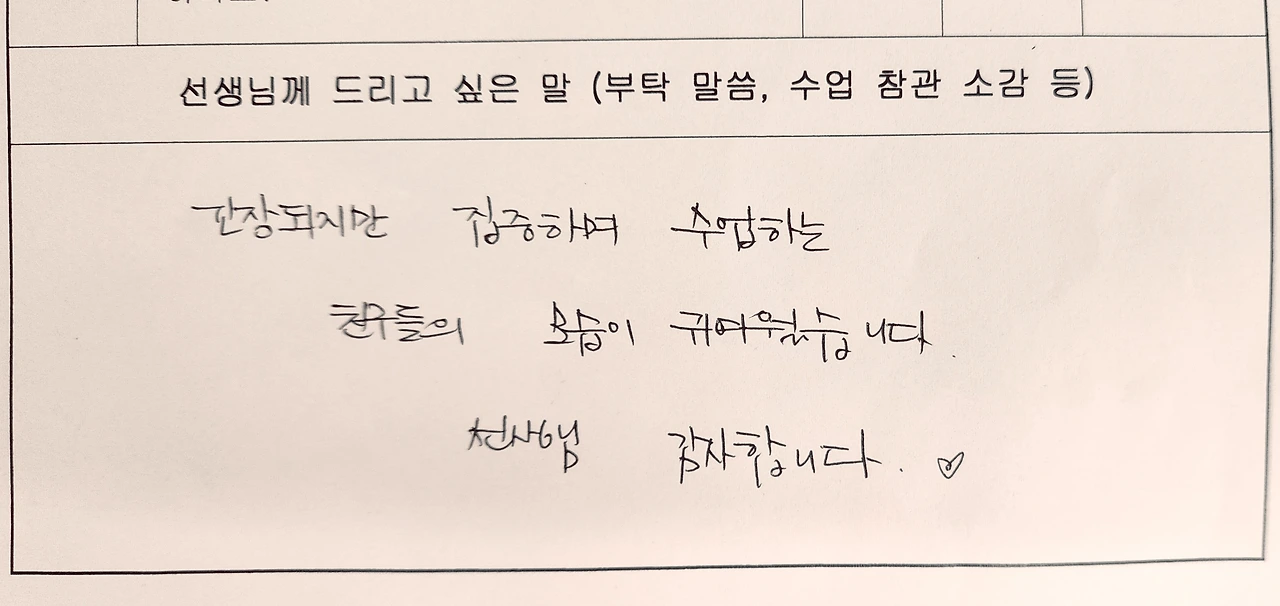 선생님께 드리고 싶은 말 (부탁 말씀, 수업 참관 소감 등)
긴장되지만 집중하며 수업하는
친구들의 모습이 귀여웠습니다.
감사합니다. ♡